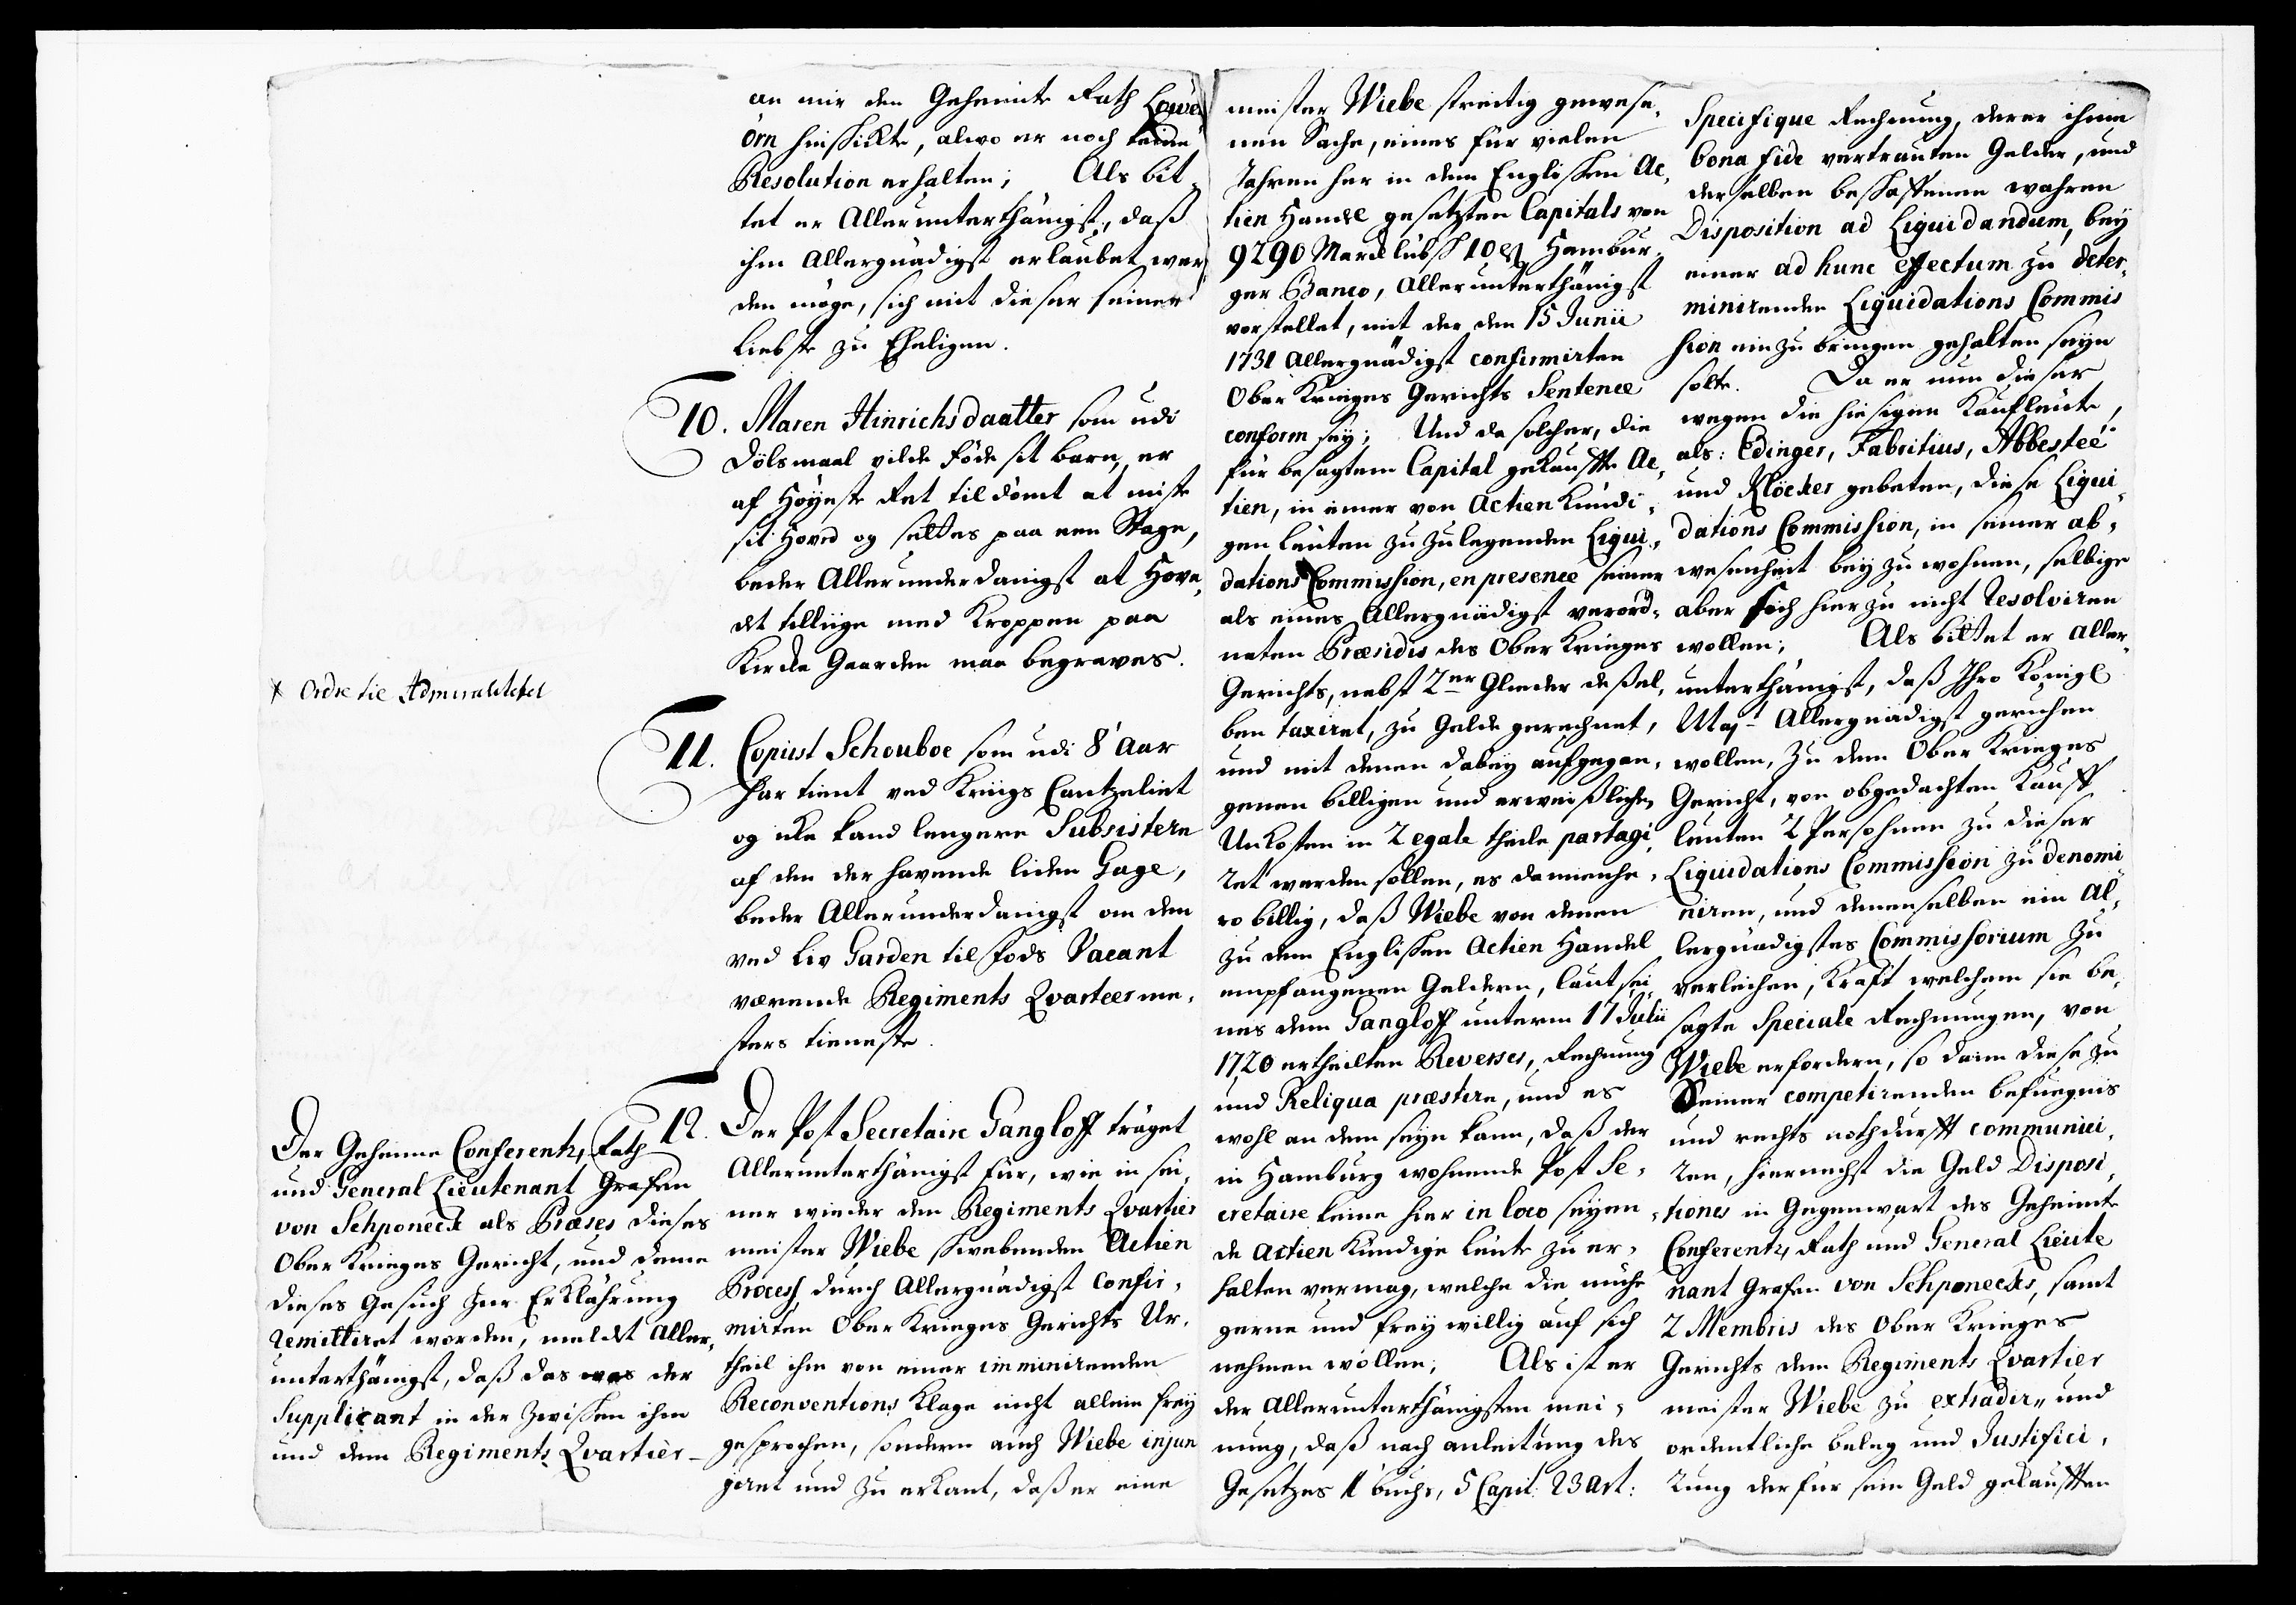 an mir den Geheimte Rath Löwen
örn hinschickte, alwo er noch keine
Resolution erhalten; Als bit¬
tet er Allerunterthänigst, daß
ihm Allergnädigst erlaubet wer
den möge, sich mit dieser seiner
Liebste zu Eheligen.
10. Maren Hinrichsdaatter som udi
Dölsmaal vilde föde sit barn, er
af Höyeste Ret tildömt at miste
sit Hoved og settes paa een Stage,
beder Allerunderdanigst at Hove¬
det tillige med Kroppen paa
Kirke Gaarden maa begraves.
* Ordre til Admiralitetet
11. Copiist Schouboe som udi 8 Aar
har tient ved Kriigs Cantzeliet
og icke kand lengere Subsistere
af den der havende liden Gage,
beder Allerunderdanigst om den
ved Liv Garden til Fods Vacant
værende Regiments Qvarteerme¬
sters tieneste.
Der Geheime Conferentz Rath
und General Lieutenant Grafen
von Schponeck als Præses dieses
Ober Krieges Gericht, und deme
dieses Gesuch zur Erklährung
remittiret worden, meldet Aller¬
unterthänigst, daß das was der
Supplicant in der Zwischen ihm
und dem Regiments Qvartier-
12. Der Post Secretaire Gangloff träget
Allerunterthänigst für, wie in sei¬
ner wieder den Regiments Qvartier
meister Wiebe schwebenden Actien
Process durch Allergnädigst confir¬
mirten Ober Krieges Gerichts Ur¬
theil ihm von einer imminirenden
Reconventions Klage nicht allein frey
gesprochen, sondern auch Wiebe injun
giret und zu erkant, daß er eine
meister Wiebe streitig gewese¬
nen Sache, eines für vielen
Jahren her in dem Englischen Ac¬
tien Handel gesetzten Capitals von
9290 Marck lübsch 10 ß Hambur¬
ger Banco, Allerunterthänigst
vorstellet, mit der den 15 Junii
1731 Allergnädigst confirmirten
Ober Krieges Gerichts Sentence
conform sey; Und da solcher, die
für besagtem Capital gekauffte Ac¬
tien, in einer von Actien Kundi¬
gen leuten zu zulegenden Liqui¬
dations Commission, en presence seiner
als eines Allergnädigst verord¬
neten Præsidis des Ober Krieges
Gerichts, nebst 2er Glieder deßel¬
ben taxiret, zu Gelde gerechnet,
und mit denen dabey aufgegan¬
genen billigen und erweißlichen
Unkosten in 2 egale theile partagi¬
ret werden sollen, es demnche¬
ro billig, daß Wiebe von denen
zu dem Englischen Actien Handel
empfangenen Geldern, laut sei¬
nes dem Gangloff unterm 17 Julii
1720 ertheilten Reverses, Rechnung
und Reliqua præstire, und es
wohl an dem seyn kann, daß der
in Hamburg wohnende Post Se¬
cretaire keine hier in loco seyen¬
de Actien kundige leute zu er¬
halten vermag, welche die mühe
gerne und frey willig auf sich
nehmen wollen; Als ist er
der Allerunterthänigsten mei¬
nung, daß nach anleitung des
Gesetzes 1 buchs, 5 Capit: 23 Art:
Specifique Rechnung, derer ihme
bona fide vertrauten Gelder, und
derselben beschaffenen wahren
Disposition ad Liquidandum, bey
einer ad hunc effectum zu deter¬
minirenden Liquidations Commis
sion einzu bringen gehalten seyn
solte. Da er nun dieser
wegen die hiesigen Kaufleute,
als: Edinger, Fabritius, Abbestée
und Klöcker gebeten, diese Liqui¬
dations Commission, in seiner ab¬
wesenheit bey zu wohnen, selbige
aber sich hierzu nicht resolviren
wollen; Als bittet er Aller¬
unterthänigst, daß Ihro Königl
Mayt Allergnädigst geruhen
wollen, Zu dem Ober Krieges
Gericht, von obgedachten Kauff
leuten 2 Persohnen zu dieser
Liquidations Commission zu denomi
niren, und denenselben ein Al¬
lergnädigstes Commissorium zu
verleihen, Kraft welchem sie be¬
sagte Speciale Rechnungen, von
Wiebe erfordern, so dann diese zu
Seiner competirenden befuegnis
und rechts nothdurfft communici¬
ren, hiernechst die Geld Disposi¬
tiones in Gegenwart des Geheimte
Conferentz Rath und General Lieute
nant Grafen von Schponecks, samt
2 Membris des Ober Krieges
Gerichts dem Regiments Qvartier
meister Wiebe zu extradir¬ und
ordentliche beleg und Justifici¬
rung der für sein Geld gekaufften